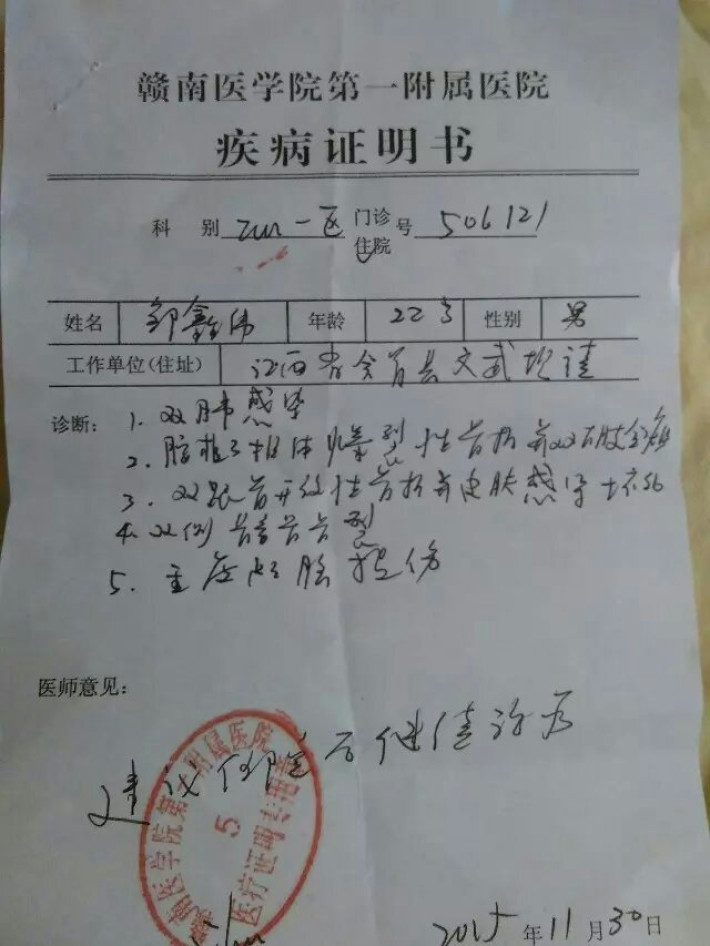 赣南医学院第一附属医院
疾病证明书
科 别 ICU一区 门诊 住院 号 506121
姓名 邹鑫伟 年龄 22岁 性别 男
工作单位(住址) 江西省会昌县文武坝镇
诊断: 1. 双肺感染
2. 腰椎 椎体爆裂性骨折并双下肢全瘫
3. 双跟骨开放性骨折并皮肤感染坏死
4. 双侧 骨 裂
5. 重度颅脑损伤
医师意见:
建议 继续治疗
赣南医学院第 附属医院
5
医疗证明专用章
2015年11月30日